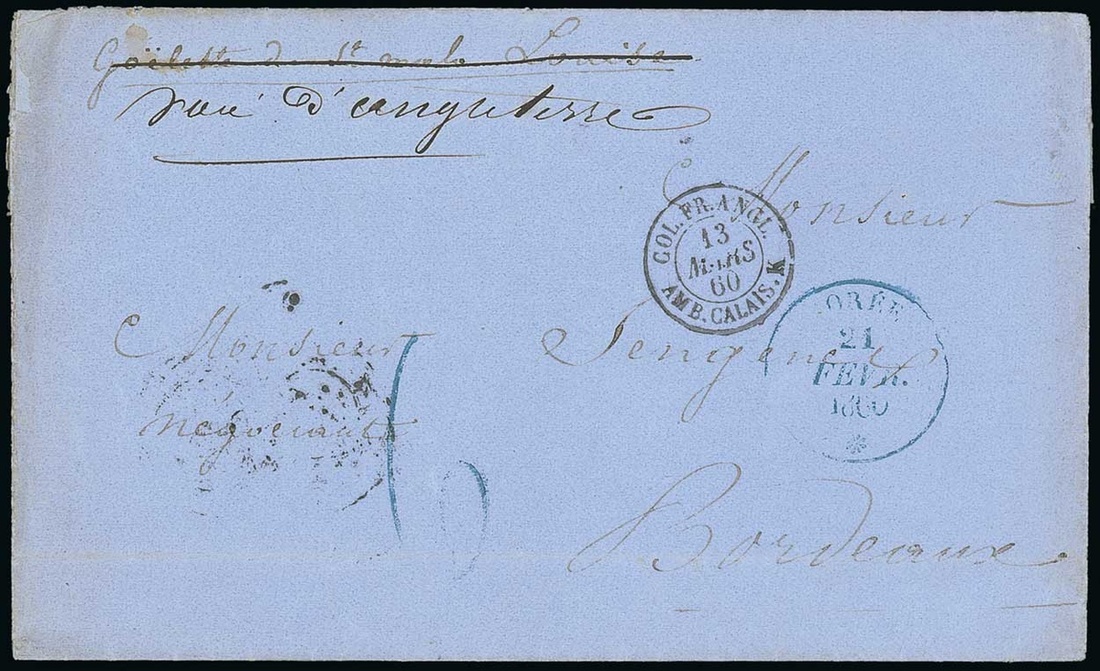 Goëlette de St malo Louise
voie d'angleterre
Monsieur
COL. FR. ANGL.
13
MARS
60
AMB. CALAIS. K
GORÉE
21
FEVR.
1860
Monsieur
négociant
Bordeaux